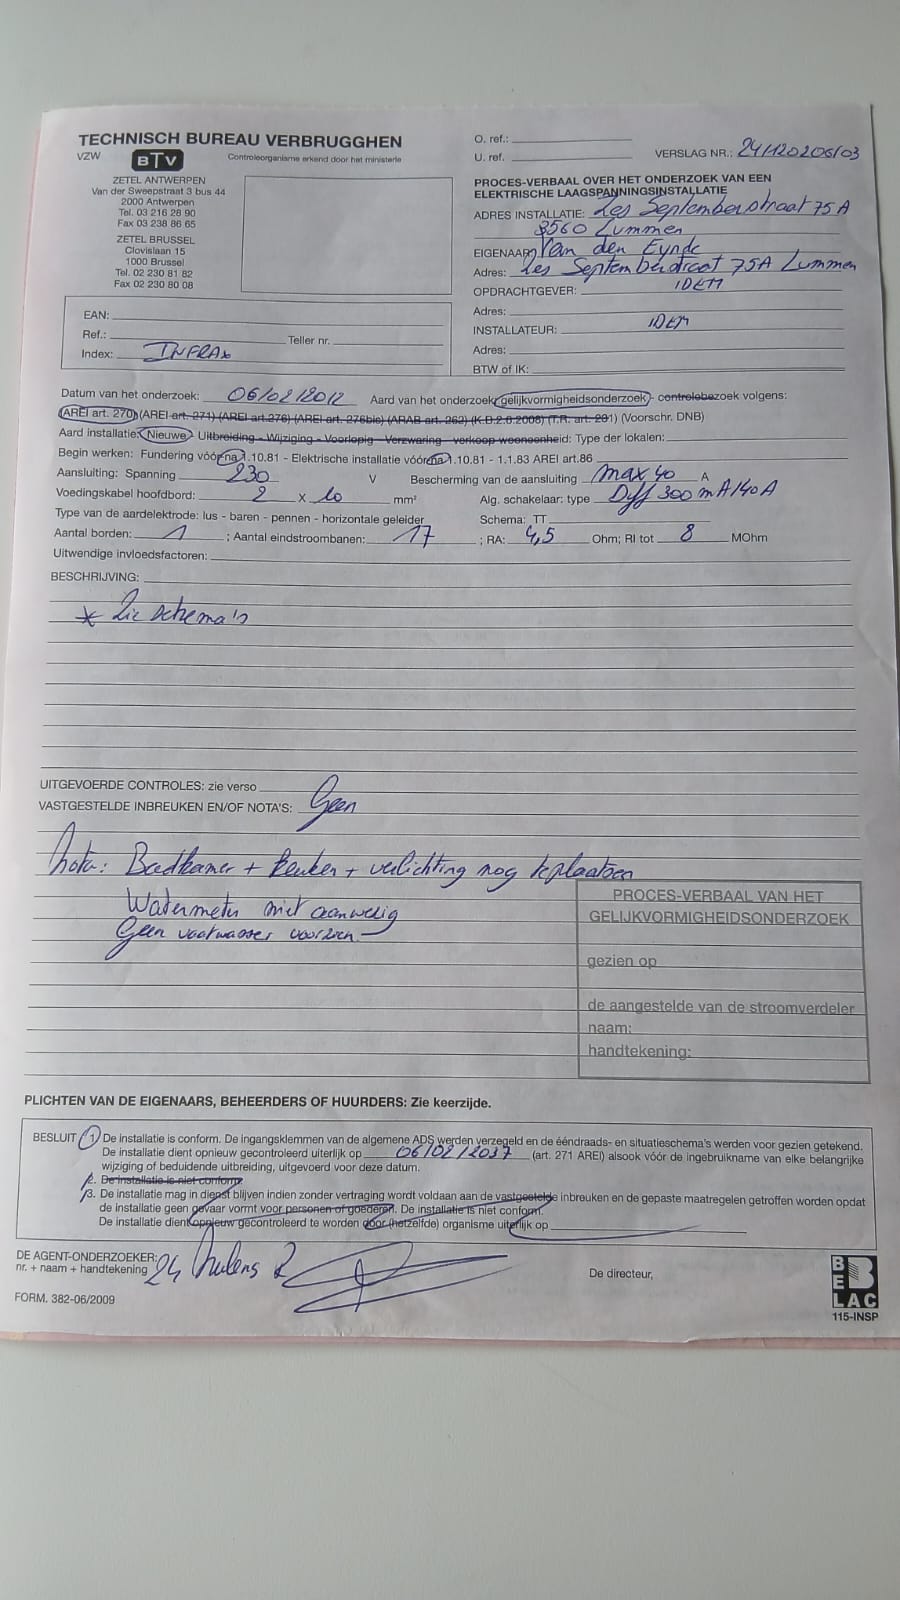 TECHNISCH BUREAU VERBRUGGHEN
VZW BTV Controleorganisme erkend door het ministerie
ZETEL ANTWERPEN
Van der Sweepstraat 3 bus 44
2000 Antwerpen
Tel. 03 216 28 90
Fax 03 238 86 65
ZETEL BRUSSEL
Clovislaan 15
1000 Brussel
Tel. 02 230 81 82
Fax 02 230 80 08
O. ref.:
U. ref. VERSLAG NR.: 24/120206/03
PROCES-VERBAAL OVER HET ONDERZOEK VAN EEN
ELEKTRISCHE LAAGSPANNINGSINSTALLATIE
ADRES INSTALLATIE: Septemberstraat 75A
3560 Lummen
EIGENAAR: Van den Eynde
Adres: Septemberstraat 75A Lummen
OPDRACHTGEVER: IDEM
Adres:
INSTALLATEUR: IDEM
Adres:
BTW of IK:
EAN:
Ref.: Teller nr.
Index: INFRAX
Datum van het onderzoek: 06/02/2012 Aard van het onderzoek: gelijkvormigheidsonderzoek - controlebezoek volgens:
(AREI art. 270) (AREI art. 271) (AREI art.276) (AREI art. 276bis) (ARAB art. 262) (K.B.2.6.2008) (T.R. art. 291) (Voorschr. DNB)
Aard installatie: Nieuwe - Uitbreiding - Wijziging - Voorlopig - Verzwaring - verkoop wooneenheid: Type der lokalen:
Begin werken: Fundering vóór na 1.10.81 - Elektrische installatie vóór na 1.10.81 - 1.1.83 AREI art.86
Aansluiting: Spanning 230 V Bescherming van de aansluiting max 40 A
Voedingskabel hoofdbord: 2 x 10 mm² Alg. schakelaar: type Diff 300 mA/40A
Type van de aardelektrode: lus - baren - pennen - horizontale geleider Schema: TT
Aantal borden: 1 ; Aantal eindstroombanen: 17 ; RA: 4,5 Ohm; RI tot 8 MOhm
Uitwendige invloedsfactoren:
BESCHRIJVING:
* Zie schema's
UITGEVOERDE CONTROLES: zie verso
VASTGESTELDE INBREUKEN EN/OF NOTA'S: Geen
Nota: Badkamer + keuken + verlichting nog te plaatsen
Watermeter niet aanwezig
Geen vaatwasser voorzien
PROCES-VERBAAL VAN HET
GELIJKVORMIGHEIDSONDERZOEK
gezien op
de aangestelde van de stroomverdeler
naam:
handtekening:
PLICHTEN VAN DE EIGENAARS, BEHEERDERS OF HUURDERS: Zie keerzijde.
BESLUIT 1 De installatie is conform. De ingangsklemmen van de algemene ADS werden verzegeld en de ééndraads- en situatieschema's werden voor gezien getekend.
De installatie dient opnieuw gecontroleerd uiterlijk op 06/02/2037 (art. 271 AREI) alsook vóór de ingebruikname van elke belangrijke
wijziging of beduidende uitbreiding, uitgevoerd voor deze datum.
2. De installatie is niet conform.
3. De installatie mag in dienst blijven indien zonder vertraging wordt voldaan aan de vastgestelde inbreuken en de gepaste maatregelen getroffen worden opdat
de installatie geen gevaar vormt voor personen of goederen. De installatie is niet conform.
De installatie dient opnieuw gecontroleerd te worden door (hetzelfde) organisme uiterlijk op
DE AGENT-ONDERZOEKER:
nr. + naam + handtekening 24
De directeur,
FORM. 382-06/2009
BELAC
115-INSP